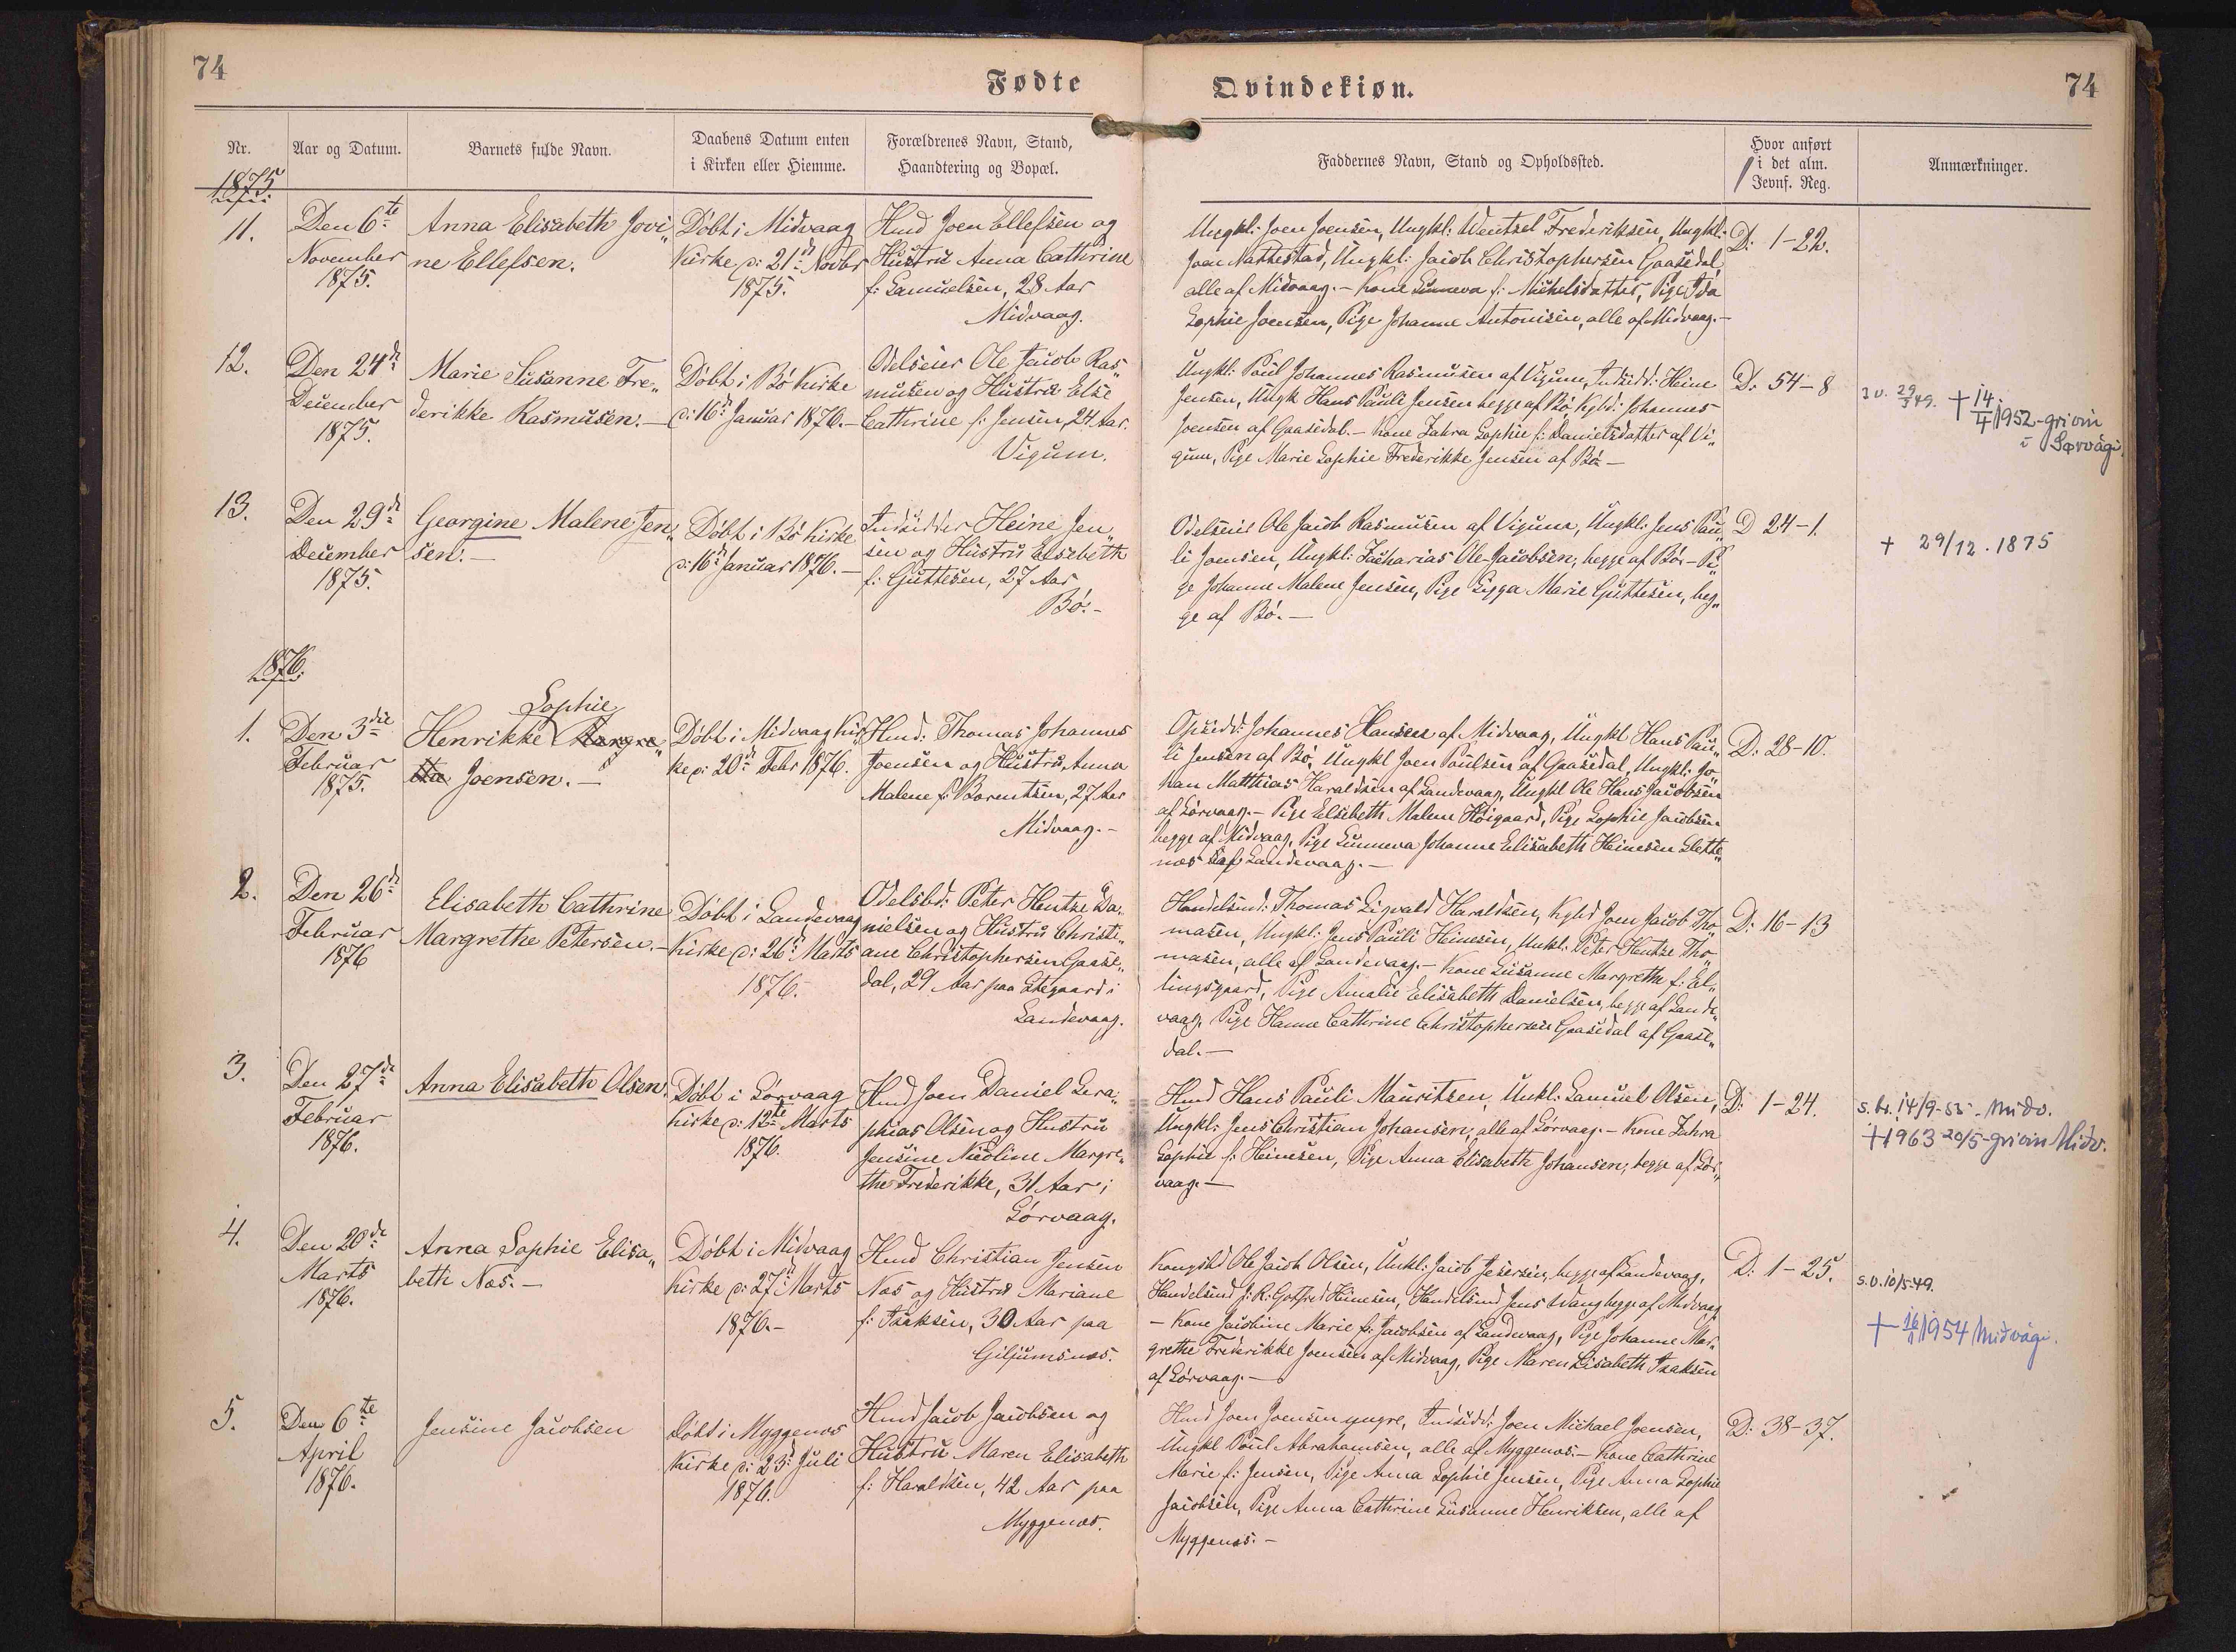 74
Fødte
Qvindekiøn.
74
Nr.
Aar og Datum.
Barnets fulde Navn.
Daabens Datum enten
i Kirken eller Hiemme.
Forældrenes Navn, Stand,
Haandtering og Bopæl.
Faddernes Navn, Stand og Opholdssted.
Hvor anført
i det alm.
Jevnf. Reg.
Anmærkninger.
1875
11.
Den 6te
November
1875.
Anna Elisabeth Jovi„
ne Ellefsen.
Döbt i Midvaag
Kirke d: 21de Novbr
1875.
Hmd Joen Ellefsen og
Hustru Anna Cathrine
f: Samuelsen, 28 Aar
Midvaag.
Ungkl: Joen Joensen, Ungkl: Wentzel Frederiksen, Ungkl:
Joen Nattestad, Ungkl: Jacob Christophersen Gaasedal,
alle af Midvaag. – Kone Sunneva f: Michelsdatter, Pige Ida
Sophie Joensen, Pige Johanne Antonisen, alle af Midvaag. –
D: 1-22.
12.
Den 24de
December
1875.
Marie Susanne Fre„
derikke Rasmusen. –
Döbt i Bö Kirke
d: 16de Januar 1876. –
Odelseier Ole Jacob Ras„
musen og Hustru Else
Cathrine f: Jensen, 24 Aar.
Vigum.
Ungkl: Poul Johannes Rasmusen af Vigum, Indsidd: Heine
Jensen, Ungk Hans Pauli Jensen begge af Bö, Kgbd: Johannes
Joensen af Gaasedal. – Kone Zahra Sophie f: Danielsdatter af Vi„
gum, Pige Marie Sophie Frederikke Jensen af Bö –
D: 54-8
29/3 49. † 14/4 1952 - grivin
í Sørvági.
13.
Den 29de
December
1875.
Georgine Malene Jen„
sen. –
Döbt i Bö Kirke
d: 16de Januar 1876. –
Indsidder Heine Jen„
sen og Hustru Elsebeth
f: Guttesen, 27 Aar
Bö. –
Odelseier Ole Jacob Rasmusen af Vigum, Ungkl: Jens Pau„
li Joensen, Ungkl: Zacharias Ole Jacobsen, begge af Bö. – Pi„
ge Johanne Malene Jensen, Pige Sigga Marie Guttesen, beg„
ge af Bö. –
D 24-1.
† 29/12. 1875
1876.
1.
Den 3die
Februar
1875.
Sophie
Henrikke Margre„
tta Joensen. –
Döbt i Midvaag Kir„
ke d: 20de Febr 1876.
Hmd: Thomas Johannes
Joensen og Hustru, Anna
Malene f: Barentsen, 27 Aar
Midvaag. –
Opsidd: Johannes Hansen af Midvaag, Ungkl Hans Pau„
li Jensen af Bö, Ungkl Joen Poulsen af Gaasedal, Ungkl: Jo„
han Matthias Haraldsen af Sandevaag, Ungkl Ole Hans Jacobsen
af Sörvaag. – Pige Elsebeth Malene Höigaard, Pige Sophie Jacobsen
begge af Midvaag, Pige Sunneva Johanne Elisabeth Heinesen Slette„
næs af Sandevaag. –
D: 28-10.
2.
Den 26de
Februar
1876
Elisabeth Cathrine
Margrethe Petersen. –
Döbt i Sandevaag
Kirke d: 26de Marts
1876.
Odelsbd: Peter Hentze Da„
nielsen og Hustru Christi„
ane Christophersen Gaase„
dal, 29 Aar paa Stegaard i
Sandevaag.
Handelsmd: Thomas Sigvald Haraldsen, Kgbd Joen Jacob Tho„
masen, Ungkl: Jens Pauli Heinesen, Unkl: Peter Hentze Tho„
masen, alle af Sandevaag. – Kone Susanne Margrethe f: El„
lingsgaard, Pige Amalie Elisabeth Danielsen, begge af Sande„
vaag, Pige Hanne Cathrine Christophersen Gaasedal af Gaase„
dal. –
D: 16-13
3.
Den 27de
Februar
1876.
Anna Elisabeth Olsen.
Döbt i Sörvaag
Kirke d: 12te Marts
1876.
Hmd Joen Daniel Sera„
phias Olsen og Hustru
Jensine Nicoline Margre„
the Frederikke, 31 Aar i
Sörvaag.
Hmd Hans Pauli Mauritsen, Unkl: Samuel Olsen,
Ungkl: Jens Christian Johansen, alle af Sörvaag. – Kone Zahra
Sophie f: Heinesen, Pige Anna Elisabeth Johansen, begge af Sör„
vaag. –
D: 1-24.
s.br. 14/9-55 - Miðv.
† 1963 20/5 - grivin Miðv.
4.
Den 20de
Marts
1876.
Anna Sophie Elisa„
beth Næs. –
Döbt i Midvaag
Kirke d: 27de Marts
1876. –
Hmd Christian Jensen
Næs og Hustru Mariane
f: Isaksen, 30 Aar paa
Giljumsnæs.
Kongsbd Ole Jacob Olsen, Unkl: Jacob Jesersen, begge af Sandevaag,
Handelsmd J. R. Gotfred Heinesen, Handelsmd Jens Wang begge af Midvaag
– Kone Jacobine Marie f: Jacobsen af Sandevaag, Pige Johanne Mar„
grethe Frederikke Joensen af Midvaag, Pige Maren Lisabeth Isaksen
af Sörvaag. –
D: 1-25.
s.v. 10/5.49.
† 16/1 1954 Miðvági.
5.
Den 6te
April
1876.
Jensine Jacobsen
Döbt i Myggenæs
Kirke d: 23de Juli
1876.
Hmd Jacob Jacobsen og
Hustru Maren Elisabeth
f: Haraldsen, 42 Aar paa
Myggenæs.
Hmd Joen Joensen yngre, Indsidd: Joen Michael Joensen,
Ungkl Poul Abrahamsen, alle af Myggenæs. – Kone Cathrine
Marie f: Jensen, Pige Anna Sophie Jensen, Pige Anna Sophie
Jacobsen, Pige Anna Cathrine Susanne Henriksen, alle af
Myggenæs. –
D: 38-37.